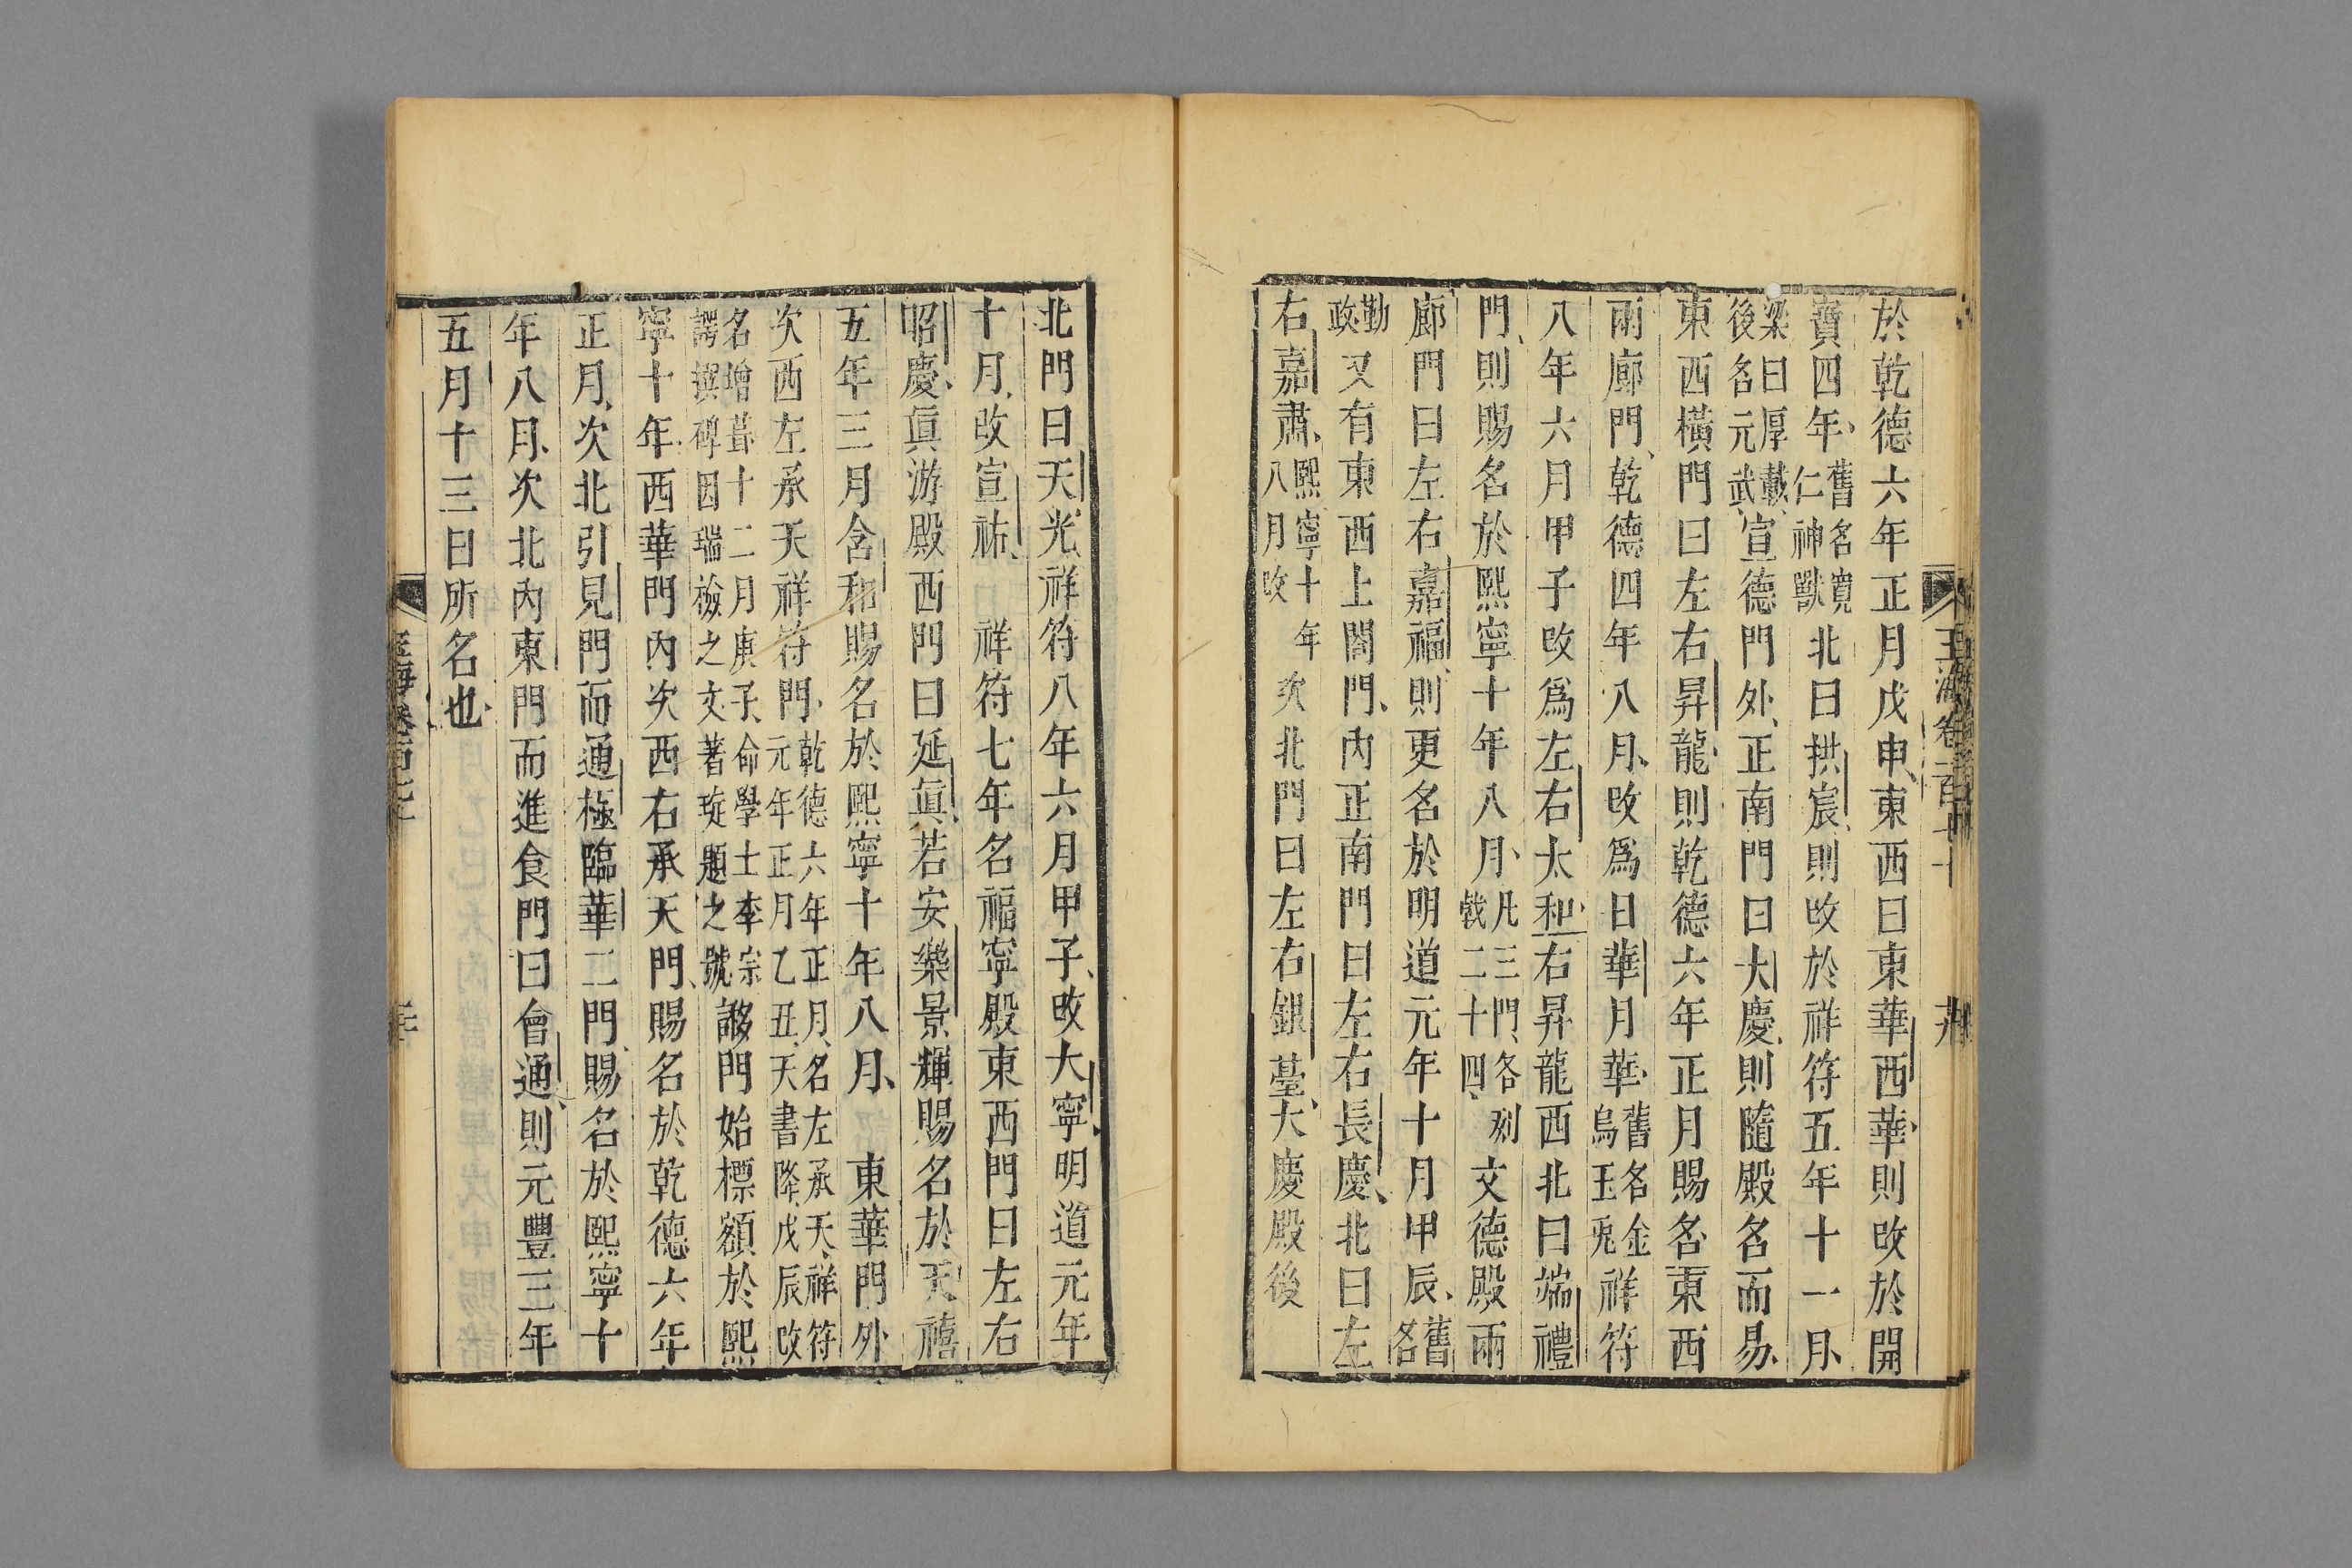 於乾德六年正月戊申東西曰東華西華則改於開
寶四年舊名寬仁神獸北曰拱宸則改於祥符五年十一月
梁曰厚載後名元武宣德門外正南門曰大慶則隨殿名而易
東西橫門曰左右昇龍則乾德六年正月賜名東西
兩廊門乾德四年八月改爲日華月華舊名金烏玉兎祥符
八年六月甲子改爲左右太和右昇龍西北曰端禮
門則賜名於熙寧十年八月凡三門各列戟二十四文德殿兩
廊門曰左右嘉福則更名於明道元年十月甲辰舊名
勤政又有東西上閤門內正南門曰左右長慶北曰左
右嘉肅熙寧十年八月改次北門曰左右銀臺大慶殿後
北門曰天光祥符八年六月甲子改大寧明道元年
十月改宣祐祥符七年名福寧殿東西門曰左右
昭慶眞游殿西門曰延眞若安樂景輝賜名於天禧
五年三月含和賜名於熙寧十年八月東華門外
次西左承天祥符門乾德六年正月名左承天祥符元年正月乙丑天書降戊辰改
名增葺十二月庚子命學士李宗諤撰碑因瑞檢之文著琁題之號謻門始標額於熙
寧十年西華門內次西右承天門賜名於乾德六年
正月次北引見門而通極臨華二門賜名於熙寧十
年八月次北內東門而進食門曰會通則元豐三年
五月十三日所名也